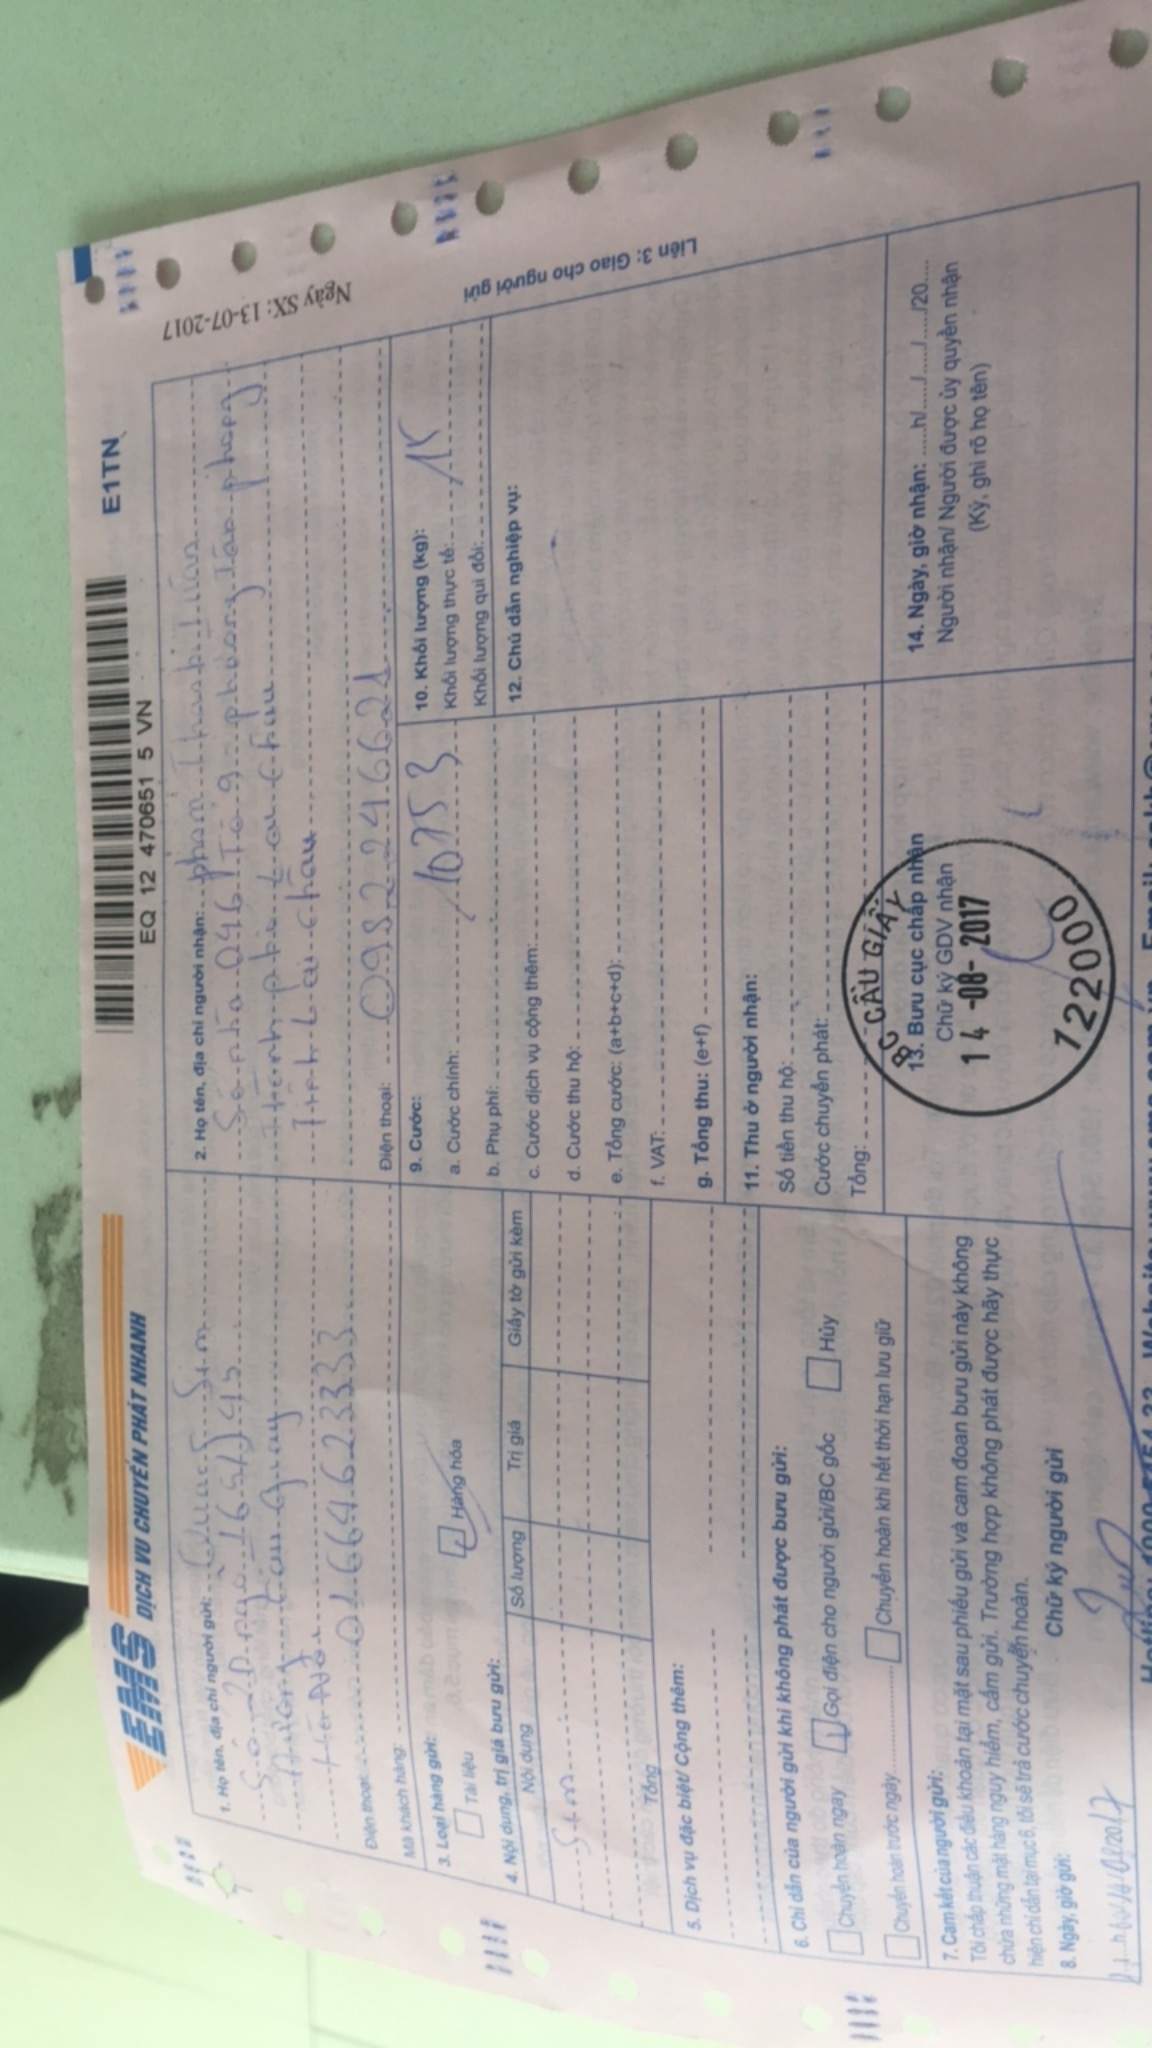 EMS DỊCH VỤ CHUYỂN PHÁT NHANH
EQ 12 470651 5 VN
E1TN
Ngày SX: 13-07-2017
Liên 3: Giao cho người gửi
1. Họ tên, địa chỉ người gửi: Sim
Hà Nội
Điện thoại: 01664623333
Mã khách hàng:
2. Họ tên, địa chỉ người nhận: phạm Thanh
Số nhà 046 Tổ 9 phường Tân phong
thành phố Lai Châu
Tỉnh Lai Châu
Điện thoại: 0982246621
3. Loại hàng gửi:
Tài liệu
Hàng hóa
4. Nội dung, trị giá bưu gửi:
Nội dung
Số lượng
Trị giá
Giấy tờ gửi kèm
Sim
Tổng
5. Dịch vụ đặc biệt/ Cộng thêm:
6. Chỉ dẫn của người gửi khi không phát được bưu gửi:
Chuyển hoàn ngay
Gọi điện cho người gửi/BC gốc
Hủy
Chuyển hoàn trước ngày
Chuyển hoàn khi hết thời hạn lưu giữ
7. Cam kết của người gửi:
Tôi chấp thuận các điều khoản tại mặt sau phiếu gửi và cam đoan bưu gửi này không
chứa những mặt hàng nguy hiểm, cấm gửi. Trường hợp không phát được hãy thực
hiện chỉ dẫn tại mục 6, tôi sẽ trả cước chuyển hoàn.
8. Ngày, giờ gửi:
Chữ ký người gửi
9. Cước:
a. Cước chính: 10753
b. Phụ phí:
c. Cước dịch vụ cộng thêm:
d. Cước thu hộ:
e. Tổng cước: (a+b+c+d):
f. VAT:
g. Tổng thu: (e+f)
10. Khối lượng (kg):
Khối lượng thực tế:
Khối lượng qui đổi:
11. Thu ở người nhận:
Số tiền thu hộ:
Cước chuyển phát:
Tổng:
12. Chú dẫn nghiệp vụ:
13. Bưu cục chấp nhận
Chữ ký GDV nhận
BC CẦU GIẤY
14-08-2017
122000
14. Ngày, giờ nhận: ......h/....../....../20....
Người nhận/ Người được ủy quyền nhận
(Ký, ghi rõ họ tên)